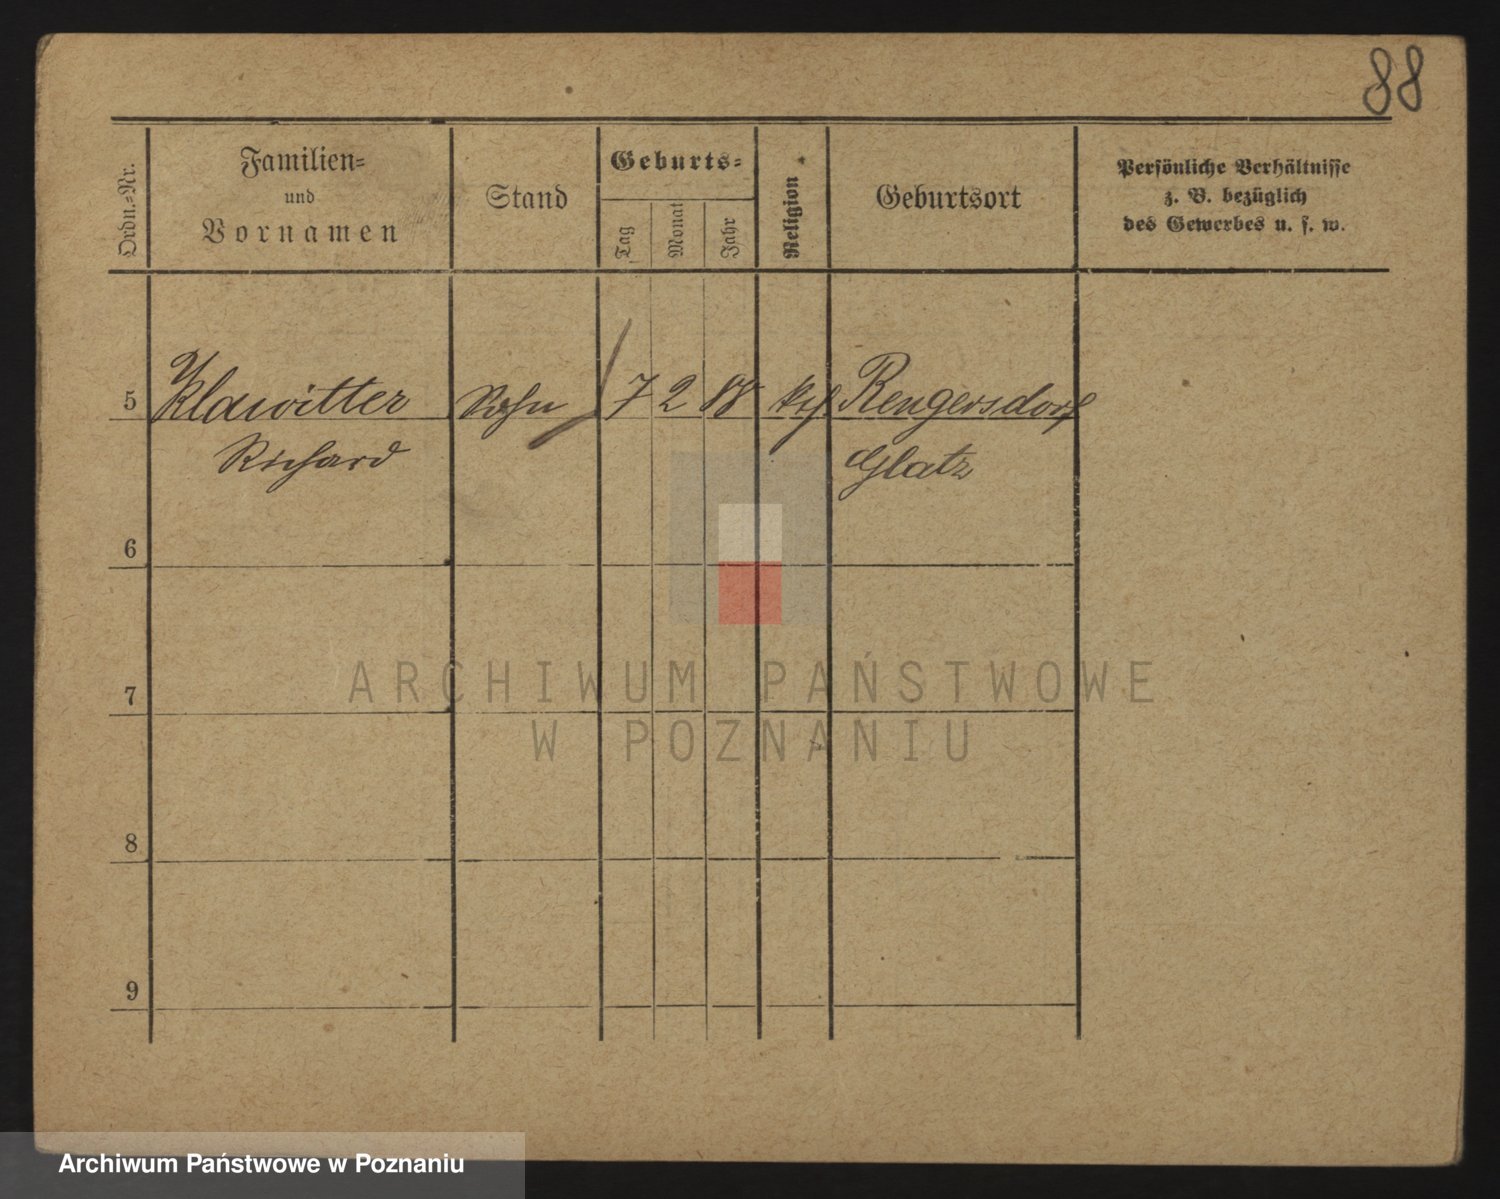 88
Ordn.-Nr.
Familien-
und
Vornamen
Stand
Geburts-
Tag
Monat
Jahr
Religion
Geburtsort
Persönliche Verhältnisse
z. B. bezüglich
des Gewerbes u. s. w.
5 Klawitter Sohn 7 2 88 Rengersdorf
Richard Glatz
6
7
8
9
ARCHIWUM PAŃSTWOWE
W POZNANIU
Archiwum Państwowe w Poznaniu